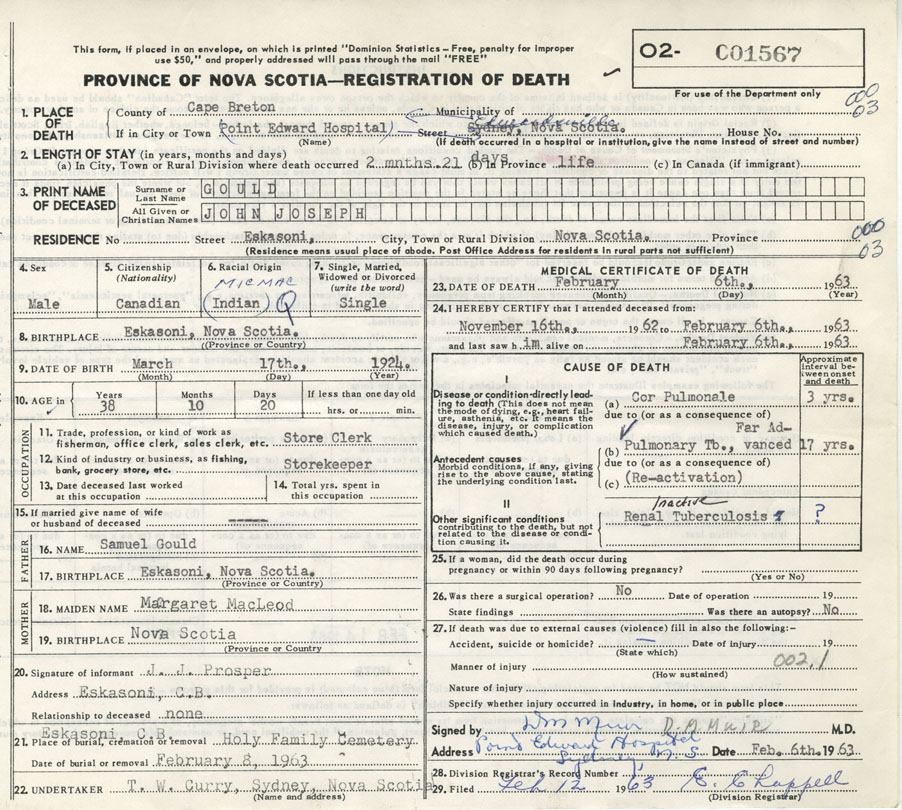 This form, if placed in an envelope, on which is printed "Dominion Statistics – Free, penalty for improper
use $50," and properly addressed will pass through the mail "FREE"
PROVINCE OF NOVA SCOTIA—REGISTRATION OF DEATH
O2- C01567
For use of the Department only
000
03
1. PLACE OF DEATH
County of Cape Breton Municipality of
If in City or Town (Point Edward Hospital) Street Sydney, Nova Scotia. House No.
(Name) (If death occurred in a hospital or institution, give the name instead of street and number)
2. LENGTH OF STAY (in years, months and days)
(a) In City, Town or Rural Division where death occurred 2 mnths. 21 days (b) In Province life (c) In Canada (if immigrant)
3. PRINT NAME OF DECEASED
Surname or Last Name GOULD
All Given or Christian Names JOHN JOSEPH
RESIDENCE No Street Eskasoni, City, Town or Rural Division Nova Scotia. Province
000
03
(Residence means usual place of abode. Post Office Address for residents in rural parts not sufficient)
4. Sex
Male
5. Citizenship (Nationality)
Canadian
6. Racial Origin
MICMAC
(Indian)
7. Single, Married, Widowed or Divorced (write the word)
Single
8. BIRTHPLACE Eskasoni, Nova Scotia.
(Province or Country)
9. DATE OF BIRTH March 17th., 1924.
(Month) (Day) (Year)
10. AGE in
Years 38
Months 10
Days 20
If less than one day old
hrs. or min.
OCCUPATION
11. Trade, profession, or kind of work as fisherman, office clerk, sales clerk, etc. Store Clerk
12. Kind of industry or business, as fishing, bank, grocery store, etc. Storekeeper
13. Date deceased last worked at this occupation
14. Total yrs. spent in this occupation
15. If married give name of wife or husband of deceased
FATHER
16. NAME Samuel Gould
17. BIRTHPLACE Eskasoni, Nova Scotia.
(Province or Country)
MOTHER
18. MAIDEN NAME Margaret MacLeod
19. BIRTHPLACE Nova Scotia
(Province or Country)
20. Signature of informant J. J. Prosper
Address Eskasoni, C.B.
Relationship to deceased none
Eskasoni, C.B.
21. Place of burial, cremation or removal Holy Family Cemetery
Date of burial or removal February 8, 1963
22. UNDERTAKER T. W. Curry, Sydney, Nova Scotia
(Name and address)
MEDICAL CERTIFICATE OF DEATH
23. DATE OF DEATH February 6th., 1963
(Month) (Day) (Year)
24. I HEREBY CERTIFY that I attended deceased from:
November 16th., 1962 to February 6th., 1963
and last saw him alive on February 6th., 1963
CAUSE OF DEATH
Approximate interval between onset and death
I
Disease or condition directly leading to death (This does not mean the mode of dying, e.g., heart failure, asthenia, etc. It means the disease, injury, or complication which caused death.)
(a) Cor Pulmonale 3 yrs.
due to (or as a consequence of)
Far Ad-
(b) Pulmonary Tb., vanced 17 yrs.
Antecedent causes
Morbid conditions, if any, giving rise to the above cause, stating the underlying condition last.
due to (or as a consequence of)
(c) (Re-activation)
II
Other significant conditions
contributing to the death, but not related to the disease or condition causing it.
Inactive
Renal Tuberculosis ?
25. If a woman, did the death occur during
pregnancy or within 90 days following pregnancy?
(Yes or No)
26. Was there a surgical operation? No Date of operation 19
State findings Was there an autopsy? No
27. If death was due to external causes (violence) fill in also the following:–
Accident, suicide or homicide? — Date of injury 19
(State which)
002.1
Manner of injury
(How sustained)
Nature of injury
Specify whether injury occurred in industry, in home, or in public place
Signed by DM Muir D.M.MUIR M.D.
Address Point Edward Hospital Sydney, N.S Date Feb. 6th. 1963.
28. Division Registrar's Record Number
29. Filed Feb 12 1963 E. Chappell
(Division Registrar)